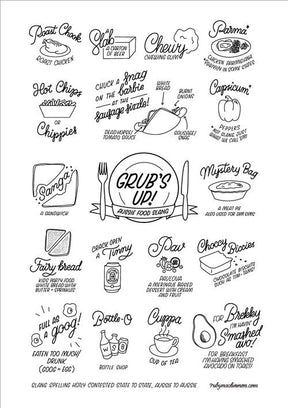 Roast Chook
ROAST CHICKEN
A Slab
A CARTON OF BEER
Chewy
CHEWING GUM
Parma*
CHICKEN PARMIGIANA
*PARMY IN SOME STATES
Hot Chips
OR
Chippies
CHUCK A Snag
ON THE barbie
AT THE
sausage sizzle!
WHITE BREAD
BURNT ONIONS
DEAD HORSE/
TOMATO SAUCE
SAUSAGE/
SNAG
Capsicum*
PEPPERS
Sanga
A SANDWICH
GRUB'S
UP!
AUSSIE FOOD SLANG
Mystery Bag
A MEAT PIE
Fairy bread
KIDS PARTY FOOD
WHITE BREAD WITH
BUTTER + SPRINKLES
CRACK OPEN
A Tinny
Pav
PAVLOVA
A MERINGUE BASED
DESSERT WITH CREAM
AND FRUIT
Choccy Biccies
CHOCOLATE BISCUITS
FULL AS
a goog!
EATEN TOO MUCH/
DRUNK
(GOOG = EGG)
Bottle-O
BOTTLE SHOP
Cuppa
CUP OF TEA
FOR Brekky
I'M HAVIN'
Smashed
avo!
FOR BREAKFAST
I'M HAVING SMASHED
AVOCADO ON TOAST
SLANG SPELLING HOTLY CONTESTED STATE TO STATE, AUSSIE TO AUSSIE